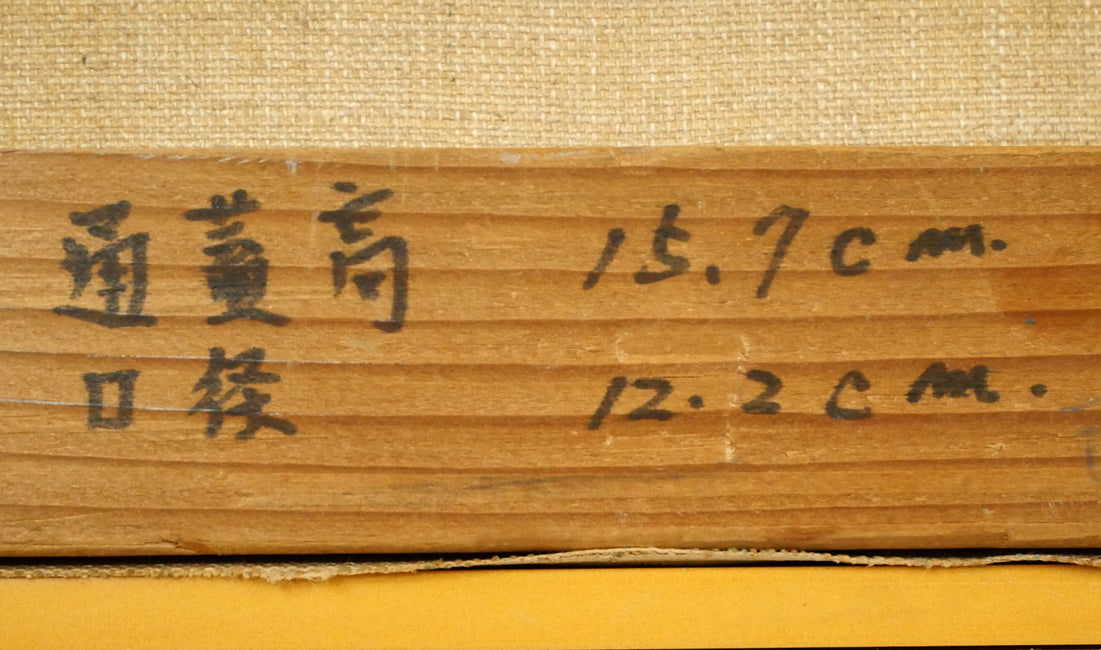 通蓋高 15.7 cm.
口径 12.2 cm.